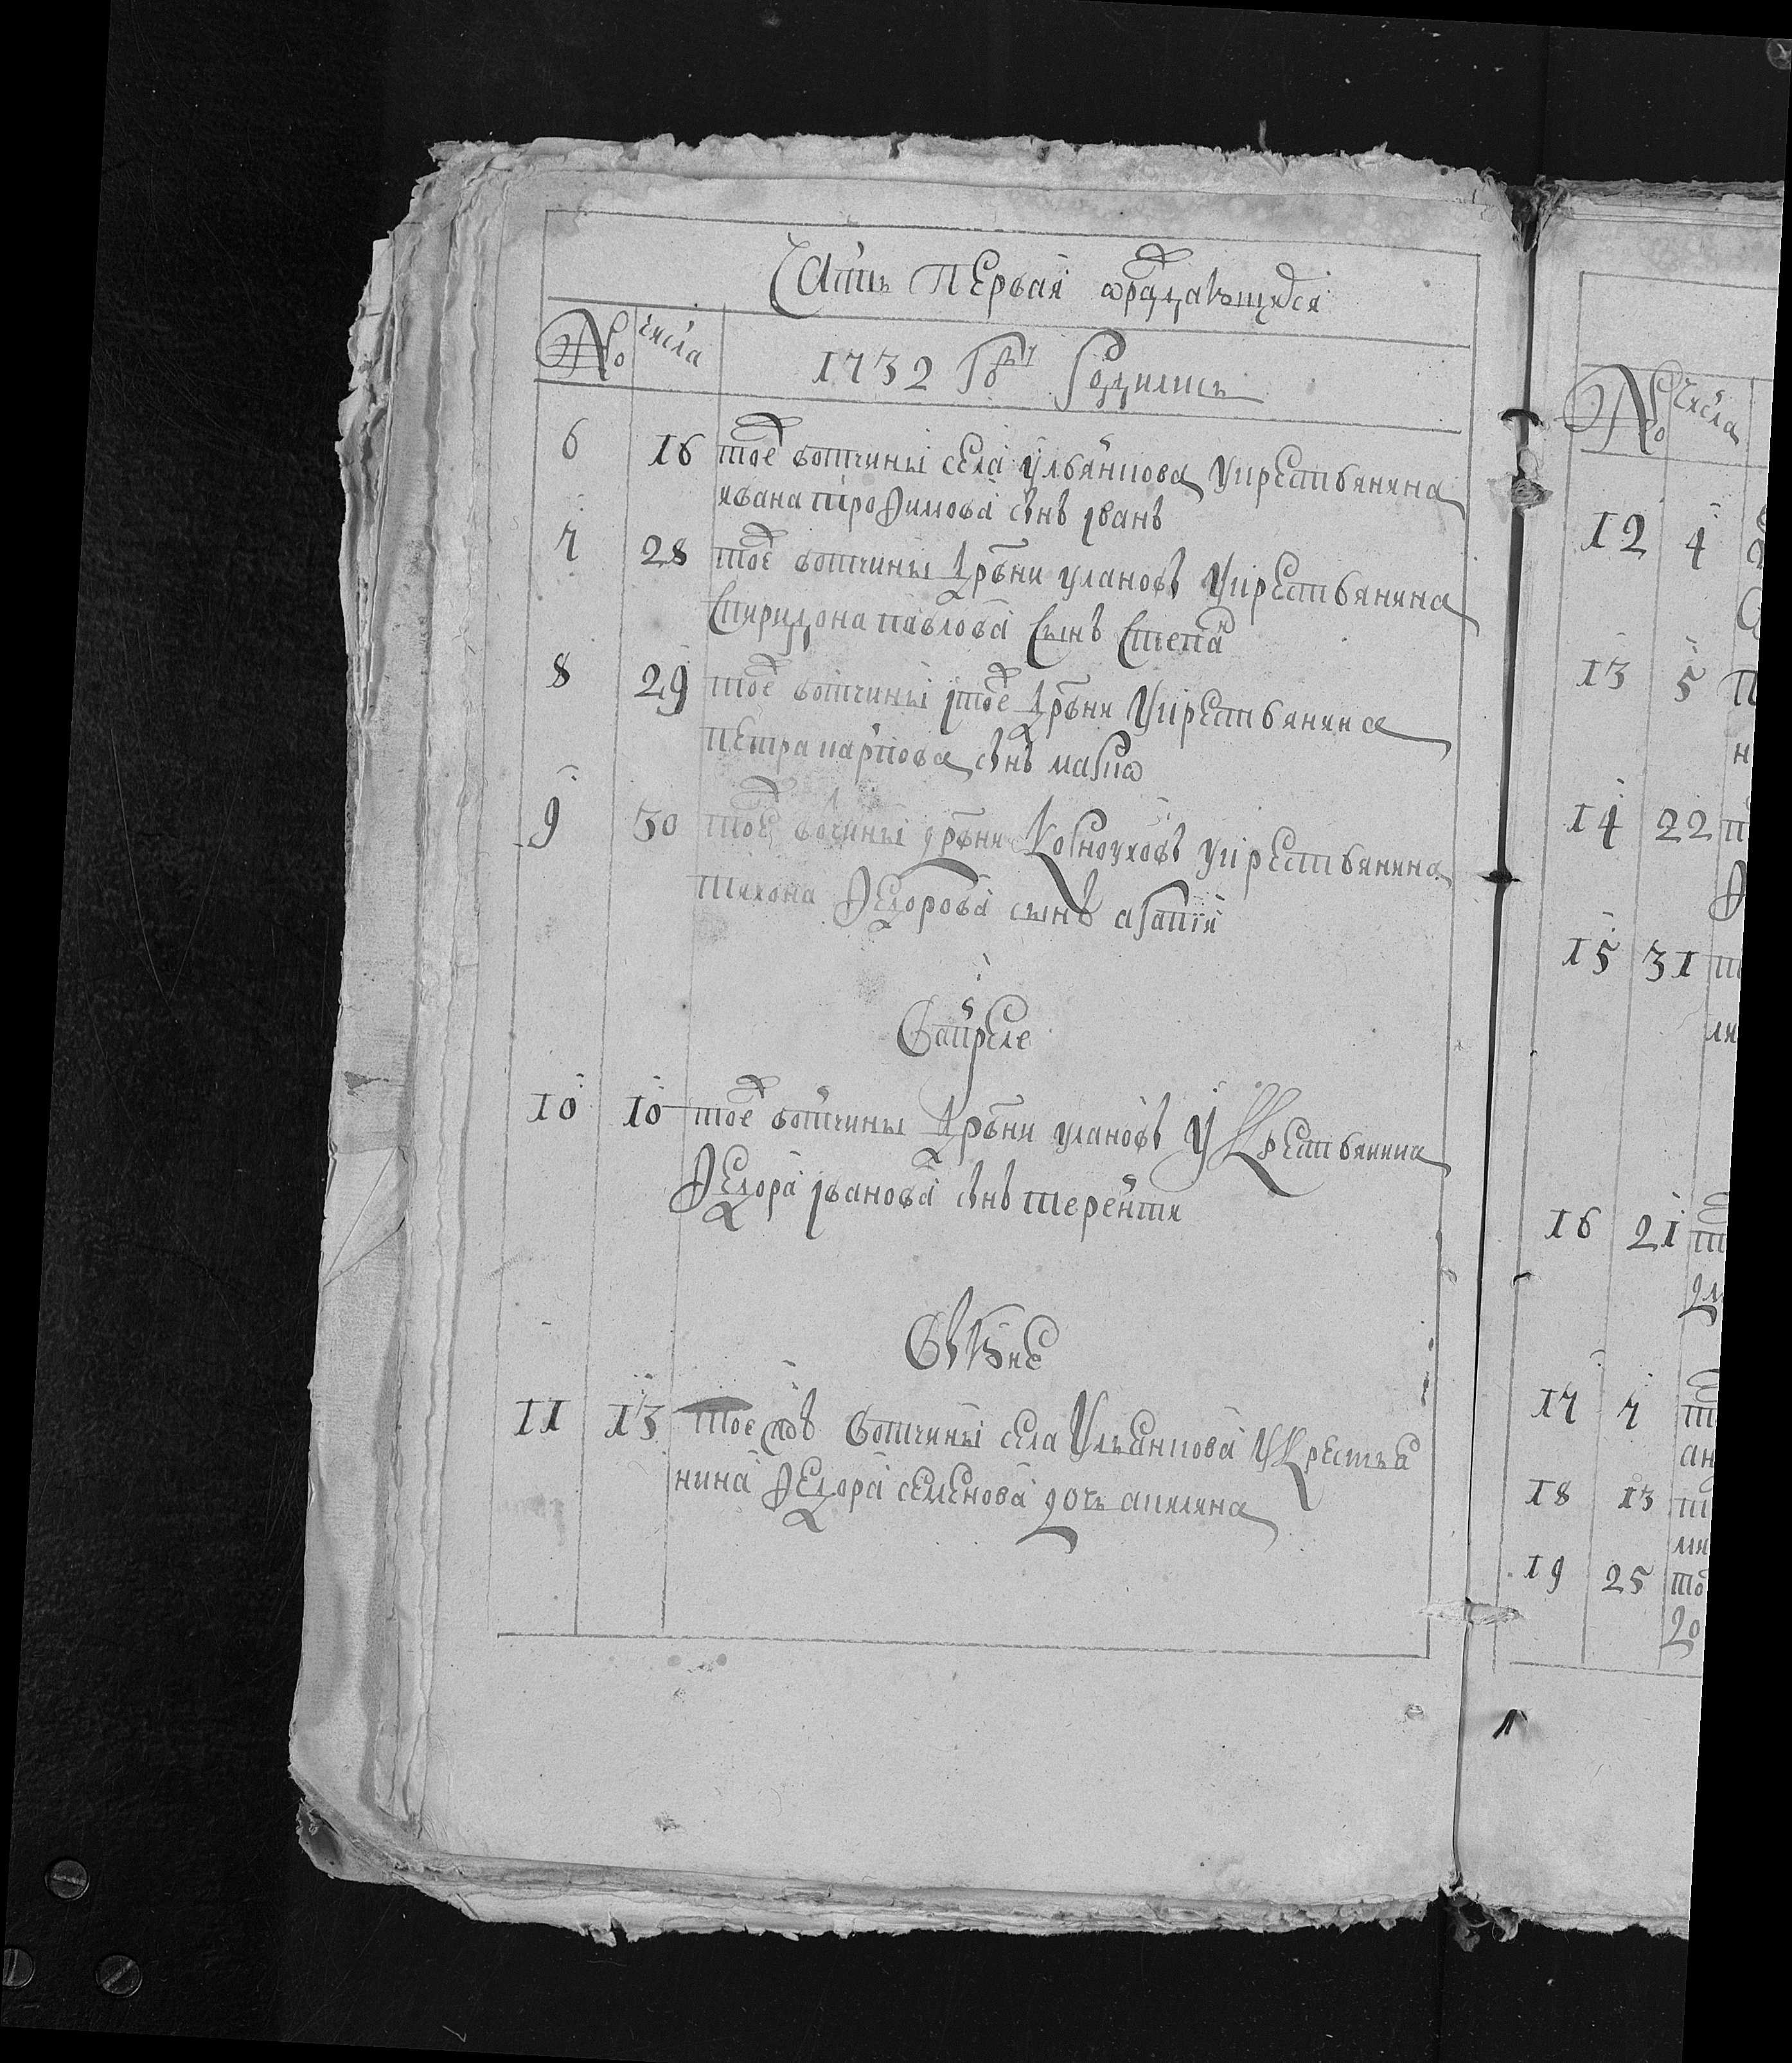 Часть первая ѡраждающихся
№ числа 1732 году Родились
6 16 тоеж вотчины села Ульянкова укрестьянина
ивана трофимова снъ іванъ
7 28 тоеж вотчины дрвни улановъ укрестьянина
Спиридона павлова Сынъ Степан
8 29 тоеж вотчины ітоеж дрвни укрестьянина
петра карпова снъ марко
9 30 тоеж вочины дрвни укрестьянина
тихона Федорова сынъ агапiи
Вапреле
10 10 тоеж вотчины дрвни улановъ у Крестьянина
Федора іванова снъ терентіи
Въ Июне
11 13 тоеж вотчины села Ульянкова у Крестья
нина Федора семенова дочь акилина
№ числа
12 4
13 5
14 22
15 31
16 21
17 7
18 13
19 25